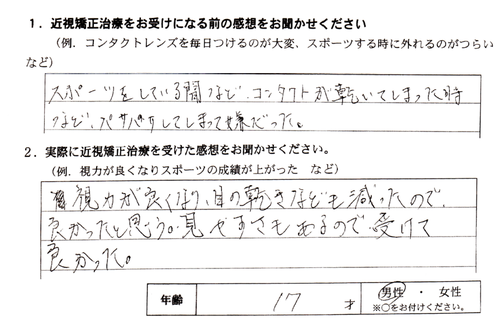 1．近視矯正治療をお受けになる前の感想をお聞かせください
（例．コンタクトレンズを毎日つけるのが大変、スポーツする時に外れるのがつらい
など）
スポーツをしている間など、コンタクトが乾いてしまった時
など、パサパサしてしまって嫌だった。
2．実際に近視矯正治療を受けた感想をお聞かせください。
（例．視力が良くなりスポーツの成績が上がった　など）
視力が良くなり、目の乾きなども減ったので、
良かったと思う。見やすさもあるので、受けて
良かった。
年齢　17　才　男性・女性
※○をお付けください。